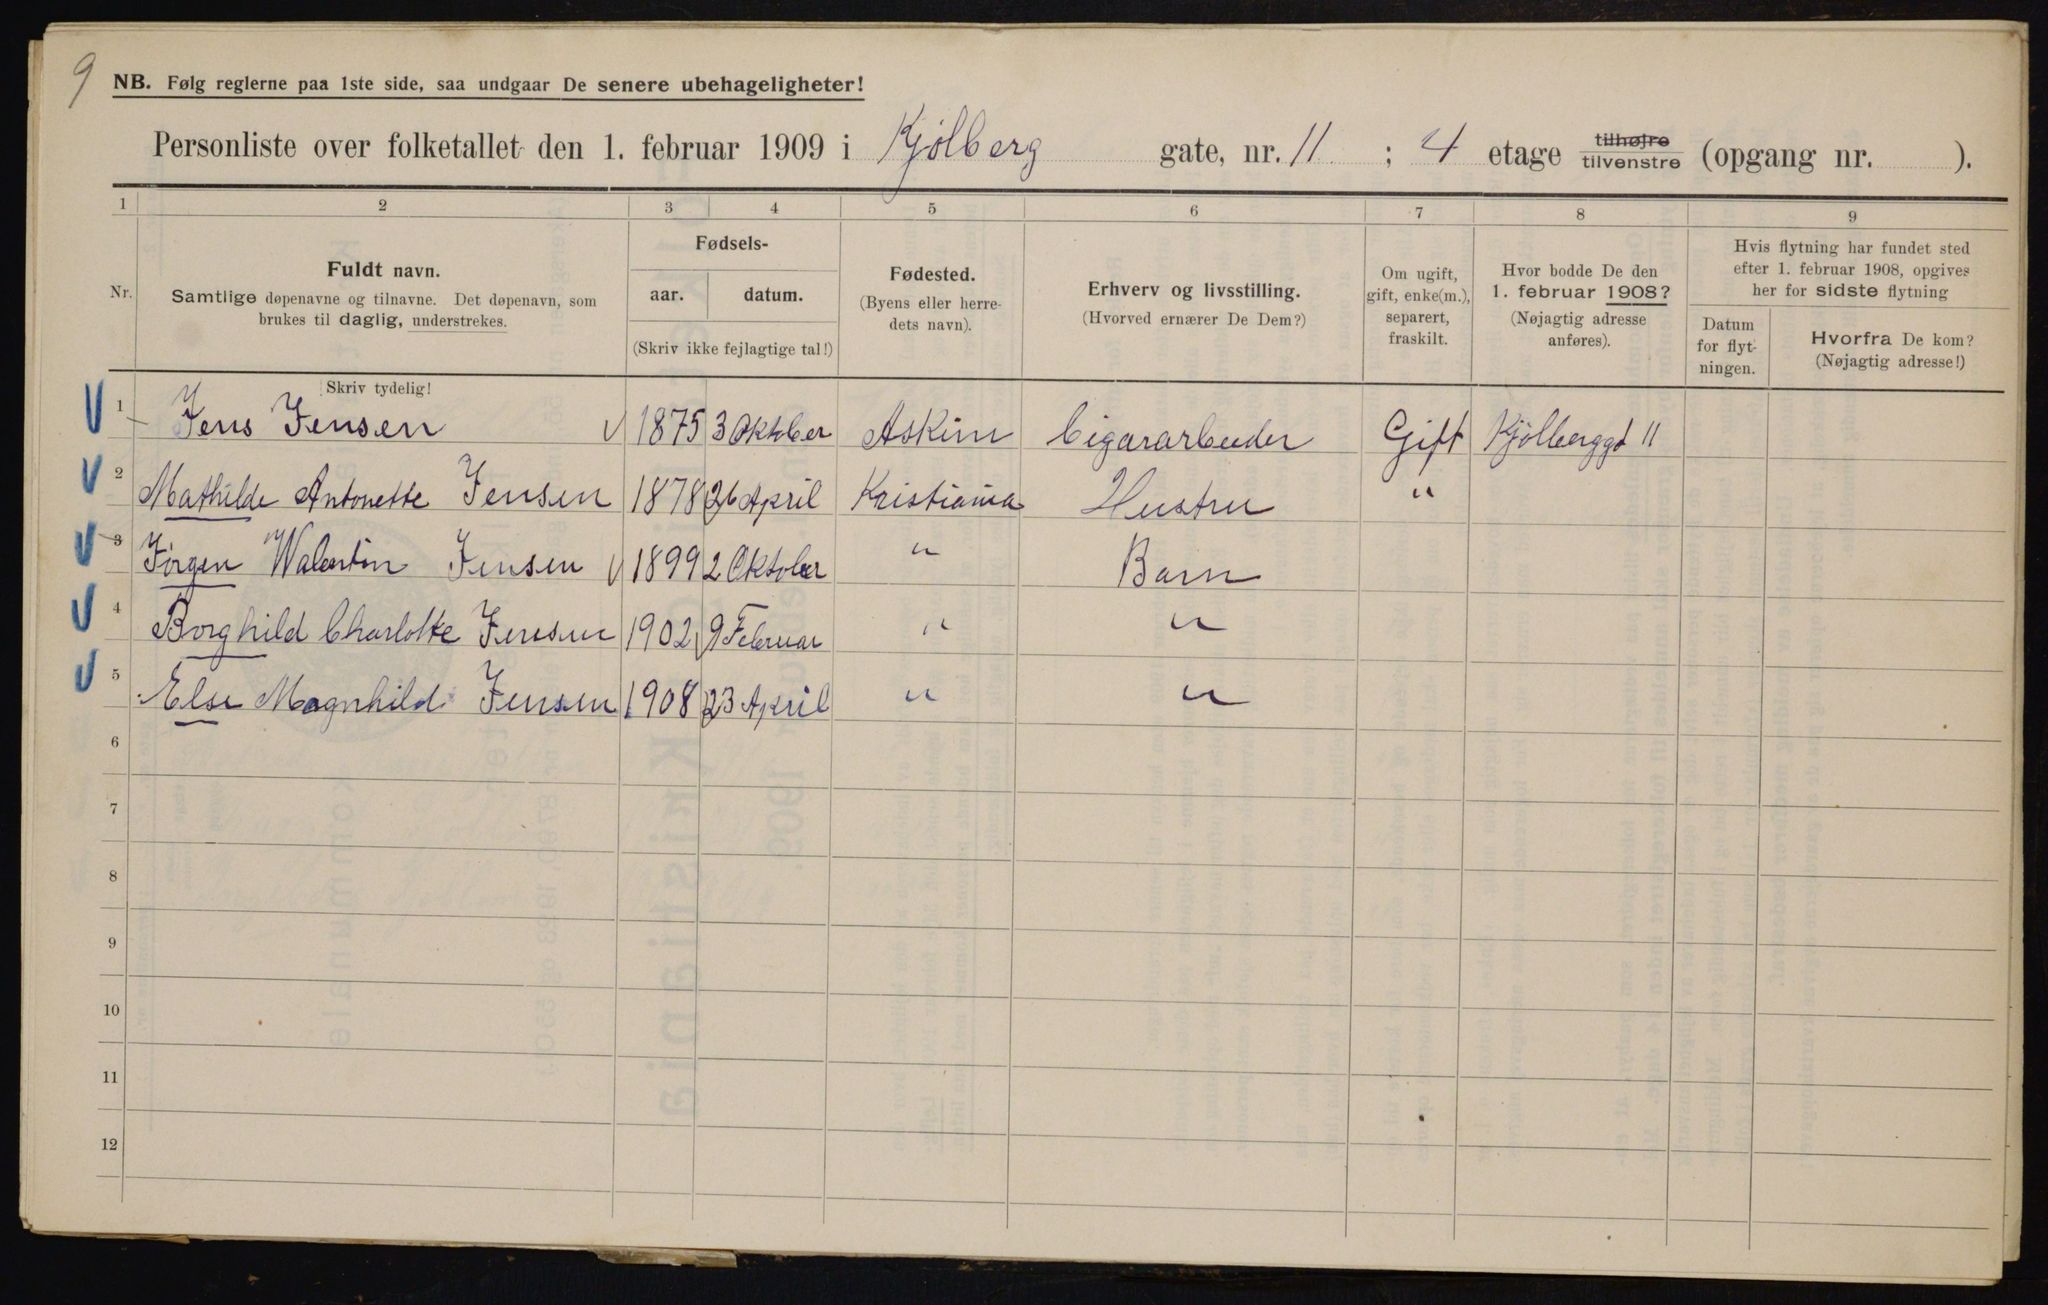 9
NB. Følg reglerne paa 1ste side, saa undgaar De senere ubehageligheter!
Personliste over folketallet den 1. februar 1909 i Kjølberg gate, nr. 11 ; 4 etage tilhøjre tilvenstre (opgang nr. ).
1 2 3 4 5 6 7 8 9
Nr.
Fuldt navn.
Samtlige døpenavne og tilnavne. Det døpenavn, som
brukes til daglig, understrekes.
Skriv tydelig!
Fødsels-
aar. datum.
(Skriv ikke fejlagtige tal!)
Fødested.
(Byens eller herre-
dets navn).
Erhverv og livsstilling.
(Hvorved ernærer De Dem?)
Om ugift,
gift, enke(m.),
separert,
fraskilt.
Hvor bodde De den
1. februar 1908?
(Nøjagtig adresse
anføres).
Hvis flytning har fundet sted
efter 1. februar 1908, opgives
her for sidste flytning
Datum
for flyt-
ningen.
Hvorfra De kom?
(Nøjagtig adresse!)
1 Jens Jensen 1875 3 Oktober Askim Cigararbeider Gift Kjølberggt 11
2 Mathilde Antonette Jensen 1878 26 April Kristiania Hustru "
3 Jørgen Walentin Jensen 1899 2 Oktober " Barn
4 Borghild Charlotte Jensen 1902 9 Februar " "
5 Else Magnhild Jensen 1908 23 April " "
6
7
8
9
10
11
12